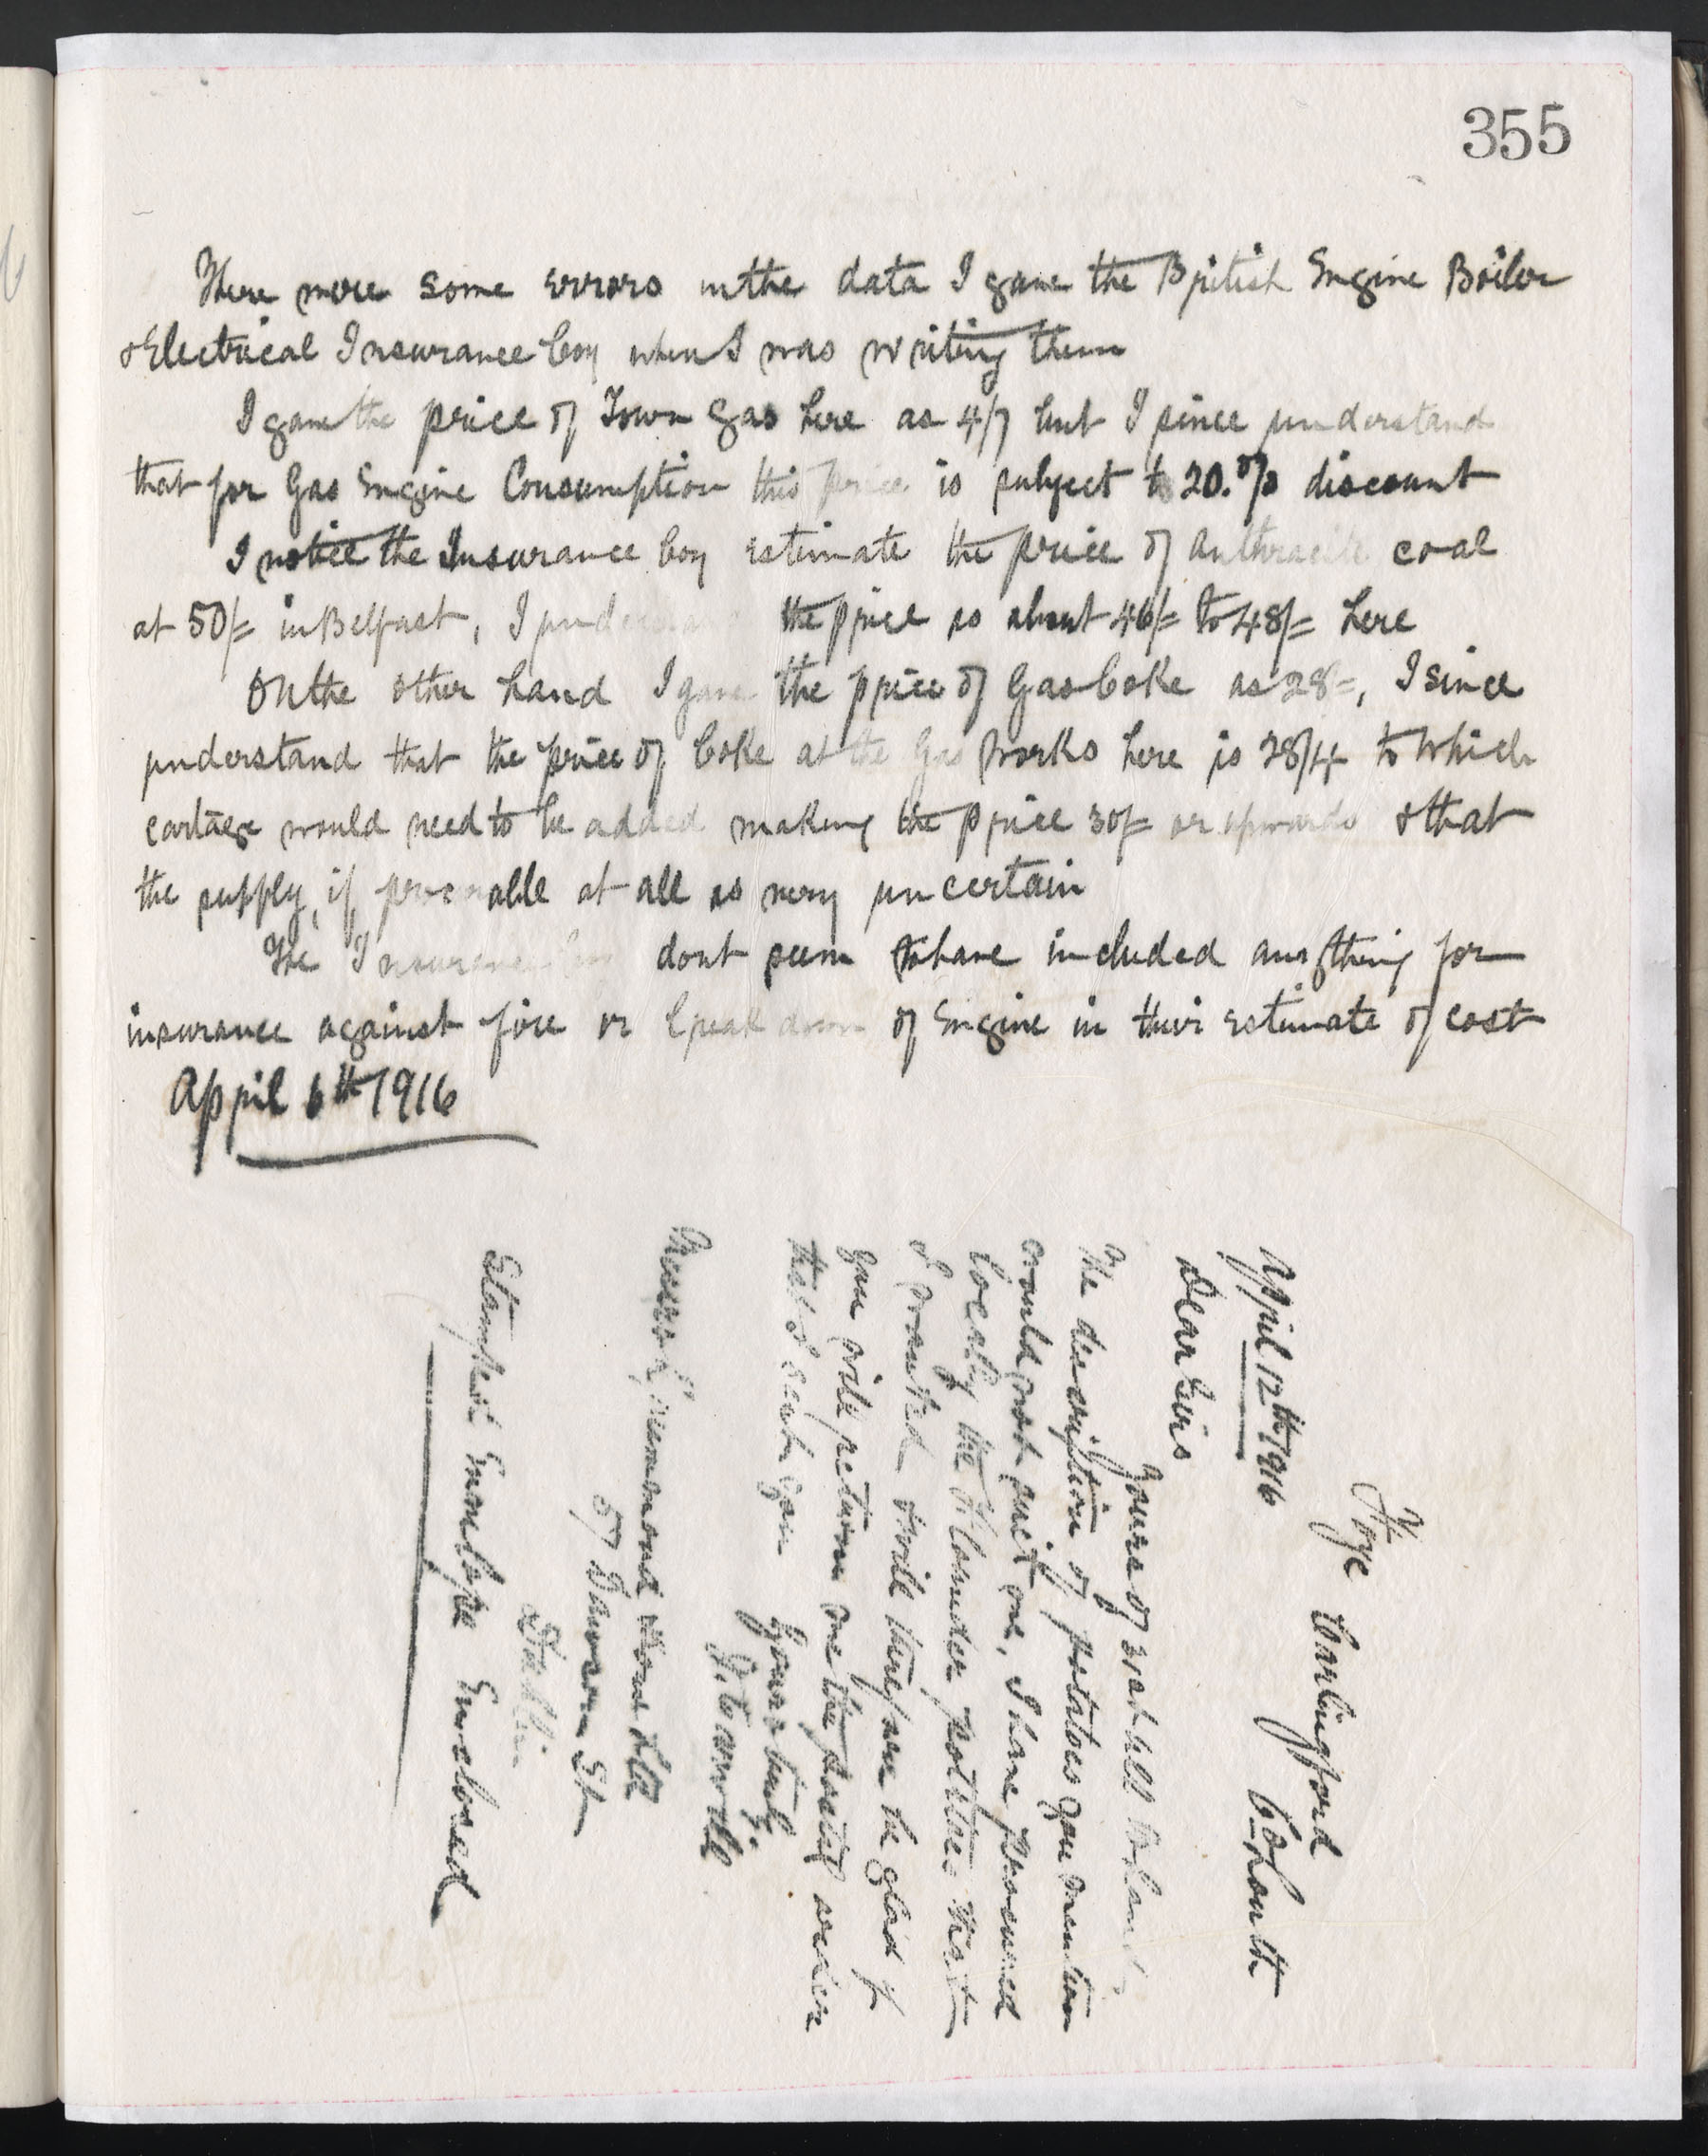 355
There were some errors in the data I gave the British Engine Boiler
& Electrical Insurance Coy when I was writing them
I gave the price of Town gas here as 4/7 but I since understand
that for Gas Engine Consumption this price is subject to 20.% discount
I notice the Insurance Coy estimate the price of anthracite coal
at 50/= in Belfast, I understand the price is about 46/= to 48/= here
On the other hand I gave the price of Gas Coke as 28=, I since
understand that the price of Coke at the Gas Works here is 28/4 to which
cartage would need to be added making the price 30/= or upwards & that
the supply, if procurable at all is very uncertain
The Insurance Coy dont seem to have included anything for
insurance against fire or break down of Engine in their estimate of cost
April 6th 1916
Foye Carlingford
Co Louth
April 12th 1916
Dear Sirs
Yours of to hand,
The description of potatoes you mention
would not suit me, I have procured
locally the potatoes that
I wanted & will therefore be glad if
you will return me the postal order
that I sent you
Yours truly
Messrs Drummond & Sons Ltd
57 Dawson St
Dublin
Stamped Envelope Enclosed